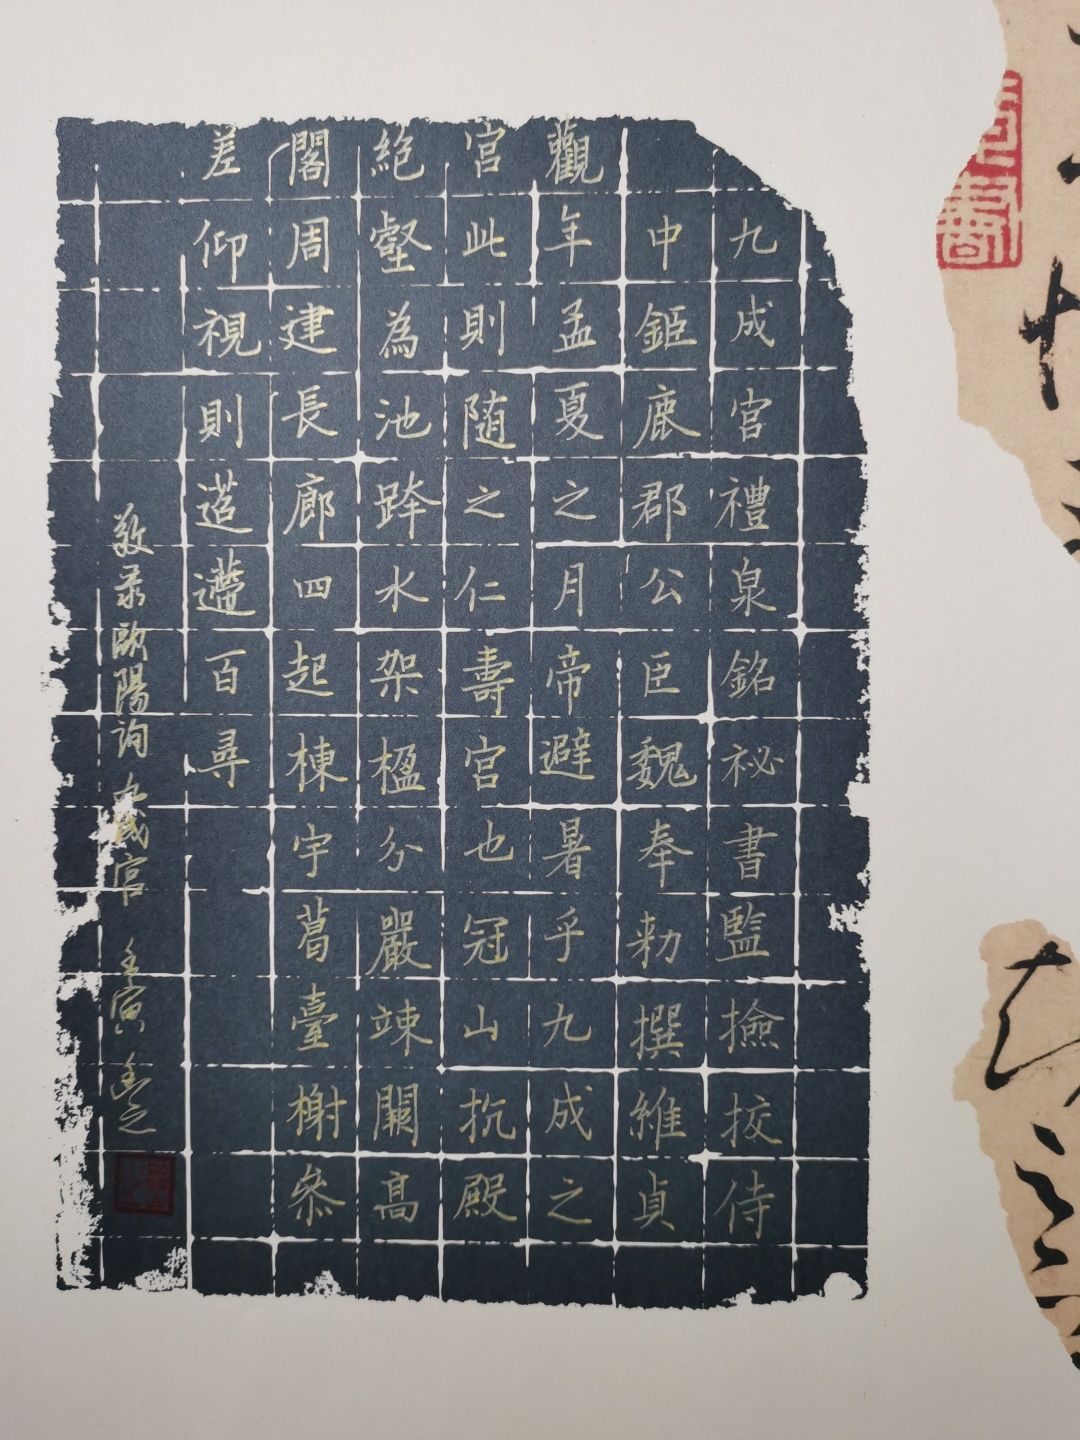 九成宫禮泉銘祕書監撿挍侍
中鉅鹿郡公臣魏奉勑撰維貞
觀年孟夏之月帝避暑乎九成之
宫此則随之仁壽宫也冠山抗殿
絶壑為池跨水架楹分嚴竦闕高
閣周建長廊四起棟宇葛臺榭叅
差仰視則迢遰百尋
敬录歐陽询九成宫 壬寅